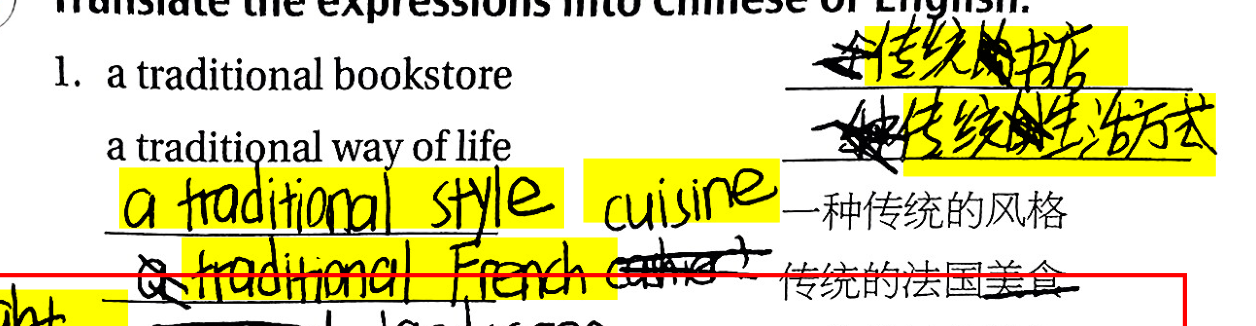 Translate the expressions into Chinese or English.
1. a traditional bookstore 传统书店
a traditional way of life 传统生活方式
a traditional style cuisine 一种传统的风格
traditional French 传统的法国美食